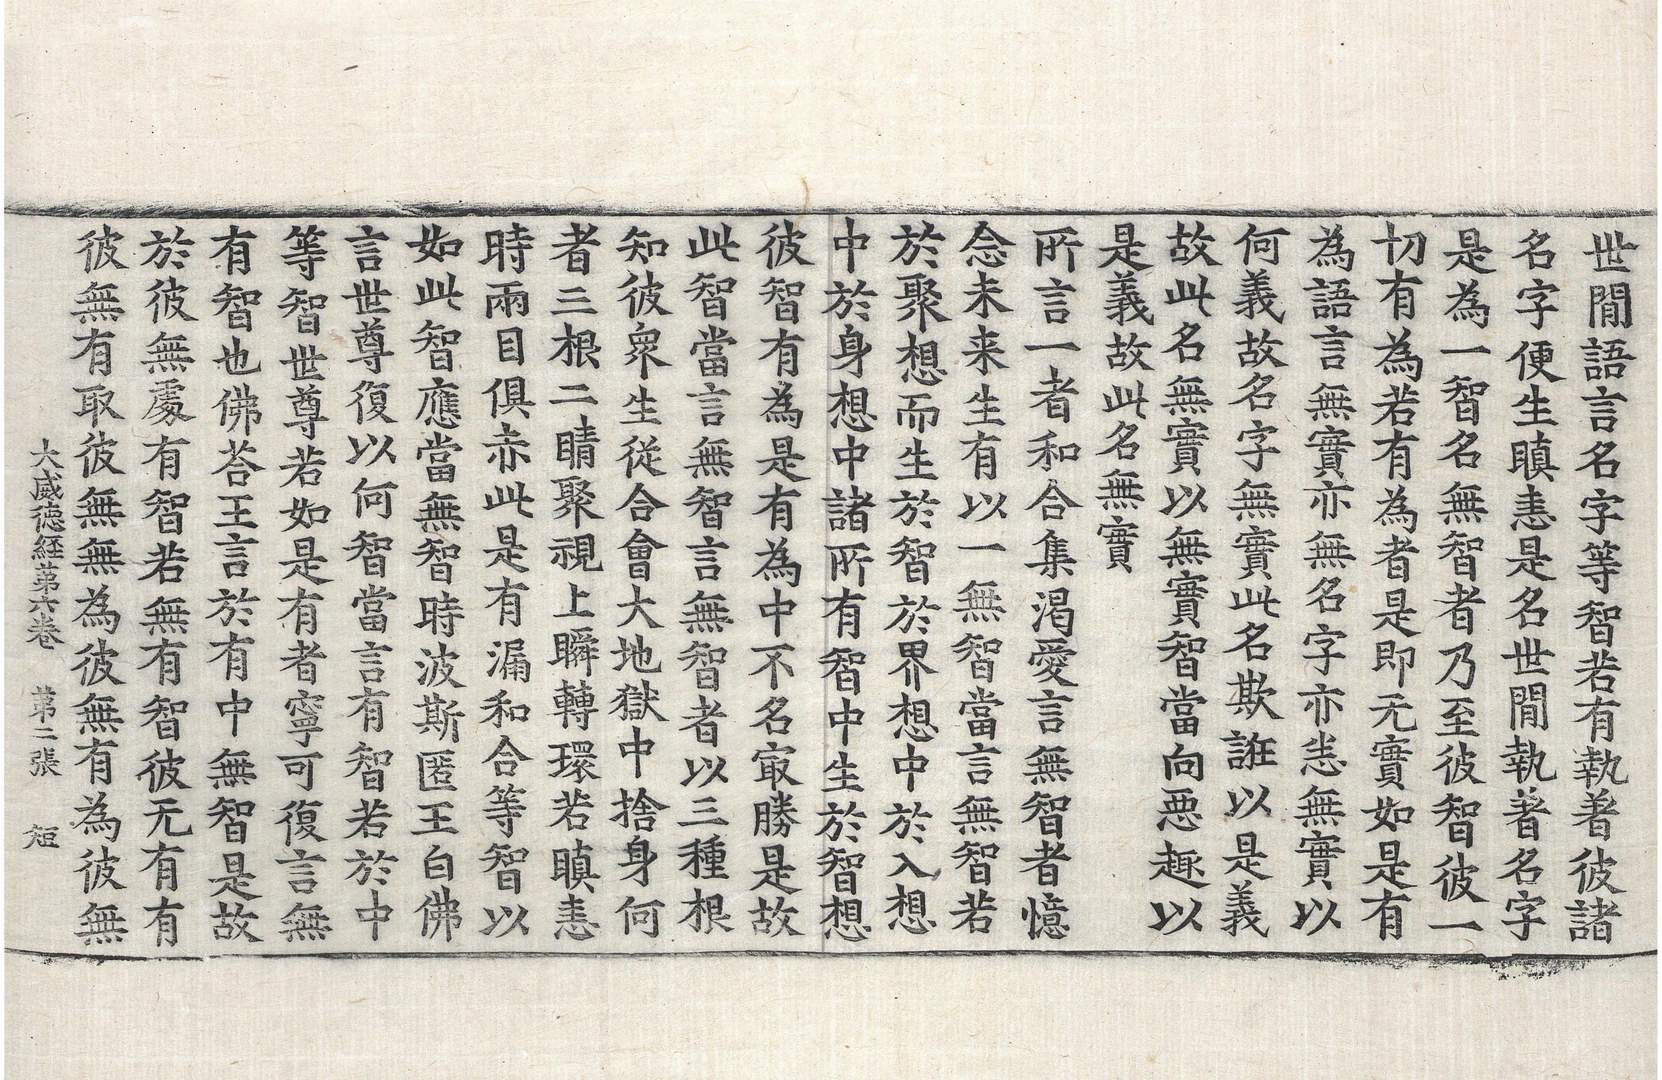 世間語言名字等智若有執著彼諸
名字便生瞋恚是名世間執著名字
是為一智名無智者乃至彼智彼一
切有為若有為者是即无實如是有
為語言無實亦無名字亦恙無實以
何義故名字無實此名欺誑以是義
故此名無實以無實智當向惡趣以
是義故此名無實
所言一者和合集渴愛言無智者憶
念未来生有以一無智當言無智若
於聚想而生於智於界想中於入想
中於身想中諸所有智中生於智想
彼智有為是有為中不名㝡勝是故
此智當言無智言無智者以三種根
知彼衆生從合會大地獄中捨身何
者三根二睛聚視上瞬轉環若瞋恚
時兩目俱赤此是有漏和合等智以
如此智應當無智時波斯匿王白佛
言世尊復以何智當言有智若於中
等智世尊若如是有者寧可復言無
有智也佛荅王言於有中無智是故
於彼無處有智若無有智彼无有有
彼無有取彼無無為彼無有為彼無
大威徳経苐六卷 苐二張 短